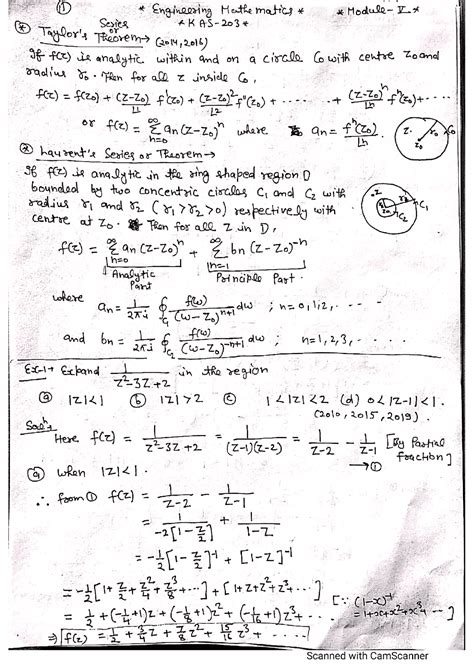 ① * Engineering Mathematics * * Module - V *
* KAS-203 *
⊛ Taylor's Series or Theorem → (2014, 2016)
If f(z) is analytic within and on a circle C₀ with centre z₀ and
radius r₀. Then for all z inside C₀,
f(z) = f(z₀) + (z-z₀)/⌊1 f'(z₀) + (z-z₀)²/⌊2 f''(z₀) + ...... + (z-z₀)ⁿ/⌊n fⁿ(z₀) + ....
or f(z) = ∞Σn=0 an (z-z₀)ⁿ where an = fⁿ(z₀)/⌊n
z. r₀ C₀ z₀
⊛ Laurent's Series or Theorem →
If f(z) is analytic in the ring shaped region D
bounded by two concentric circles C₁ and C₂ with
radius r₁ and r₂ (r₁ > r₂ > 0) respectively with
centre at z₀. Then for all z in D,
.z r₂ C₁ C₂
f(z) = ∞Σn=0 an (z-z₀)ⁿ + ∞Σn=1 bn (z-z₀)⁻ⁿ
Analytic Part Principle Part.
where an = 1/2πi ∮C₁ f(w)/(w-z₀)ⁿ⁺¹ dw ; n = 0,1,2, ....
and bn = 1/2πi ∮C₂ f(w)/(w-z₀)⁻ⁿ⁺¹ dw ; n = 1,2,3, ....
Ex-1 → Expand 1/z²-3z+2 in the region
ⓐ |z|<1 ⓑ |z|>2 ⓒ 1<|z|<2 (d) 0<|z-1|<1.
(2010, 2015, 2019).
Solⁿ →
Here f(z) = 1/z²-3z+2 = 1/(z-1)(z-2) = 1/z-2 - 1/z-1 [By Partial fraction]
→ ①
ⓐ when |z|<1.
∴ from ① f(z) = 1/z-2 - 1/z-1
= 1/-2[1-z/2] + 1/1-z
= -1/2[1-z/2]⁻¹ + [1-z]⁻¹
= -1/2[1+z/2+z²/4+z³/8+...] + [1+z+z²+z³+...]
[∵ (1-x)⁻¹ = 1+x+x²+x³+...]
= 1/2 + (-1/4+1)z + (-1/8+1)z² + (-1/16+1)z³+...
⇒ f(z) = 1/2 + 3/4 z + 7/8 z² + 15/16 z³ + ....
Scanned with CamScanner